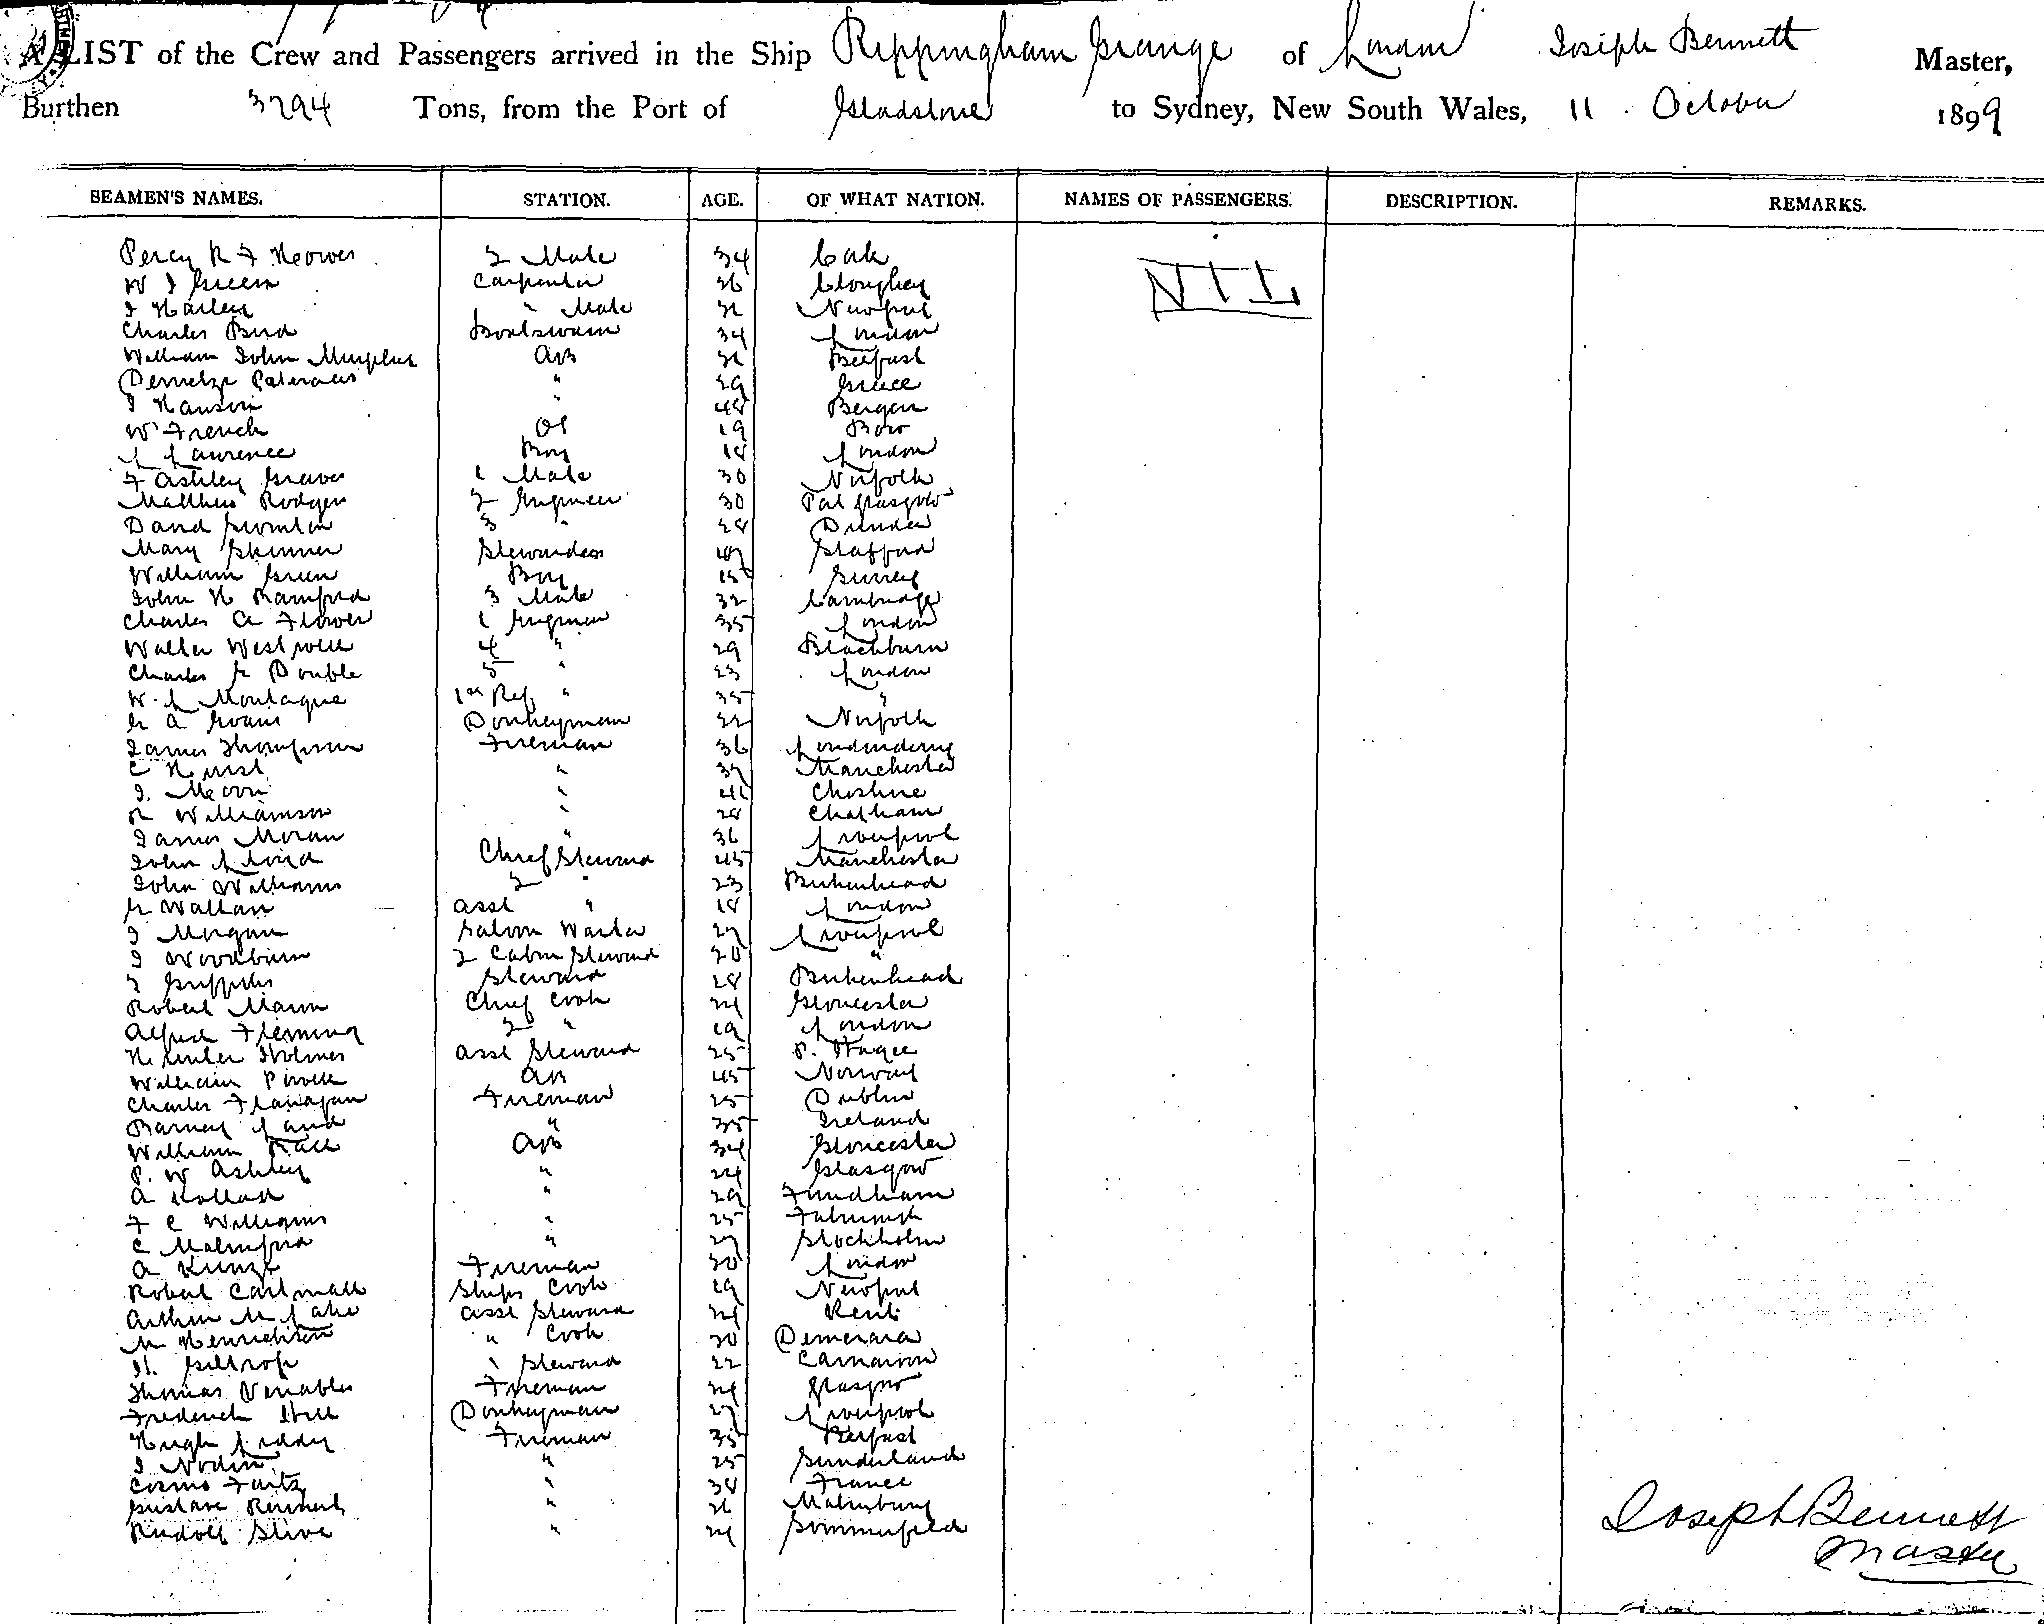 A LIST of the Crew and Passengers arrived in the Ship Rippingham Grange of London Joseph Bennett Master,
Burthen 3294 Tons, from the Port of Gladstone to Sydney, New South Wales, 11 October 1899
SEAMEN'S NAMES. STATION. AGE. OF WHAT NATION. NAMES OF PASSENGERS. DESCRIPTION. REMARKS.
Percy R F 2 Mate 34 NIL
W J Green Carpenter 26 Cloughey
J Harley " Mate Newport
Charles Bird Boatswain 34 London
William John AB Belfast
" 29 Greece
J Hanson " 48 Bergen
W French OS 19 Bow
L Laurence Boy 18 London
F Ashley Graves 1 Mate 30 Norfolk
Matthew Rodger 2 Engineer 30 Port Glasgow
David 3 " 28 Dundee
Mary Skinner Stewardess 47 Stafford
William Green Boy 15 Surrey
John H Bamford 3 Mate 32 Cambridge
Charles A Flower 1 Engineer 35 London
Walter Westwell 4 " 29 Blackburn
Charles G Double 5 " 23 London
W. L Montague 1st Ref " 35 "
G A Evans Donkeyman 22 Norfolk
James Thompson Fireman 36 Londonderry
C Hurst " 37 Manchester
J. Moon " Cheshire
R Williamson " 28 Chatham
James Moran " 36 Liverpool
John Lloyd Chief Steward 45 Manchester
John Williams 2 " 23 Birkenhead
G Wallan asst " 18 London
J Morgan Saloon Waiter 27 Liverpool
J Woodburn 2 Cabin Steward 20 "
J Griffiths Steward 28 Birkenhead
Robert Mann Chief Cook 24 Gloucester
Alfred Fleming 2 " 19 London
Holmes asst Steward 25
William Powell AB 45 Norway
Charles Flanagan Fireman 25 Dublin
Barney Land " 35 Ireland
William Hall AB 34 Gloucester
P. W Ashley " 24 Glasgow
A " 29
F C Williams " 25 Falmouth
C Malmford " 27 Stockholm
A Kunze Fireman 30 London
Robert Cartmall Ships Cook 19 Newport
Arthur M Lake asst Steward 24 Kent
M Henrickson " Cook 30 Demerara
H. Gilthorp " Steward 22 Carnarvon
Thomas Venables Fireman 24 Glasgow
Frederick Hill Donkeyman 27 Liverpool
Hugh Liddy Fireman 35 Belfast
J Nodin " 25 Sunderland
Cosmo " 38 France
Gustave " 26
Rudolf Stive " 24 Sommerfeld
Joseph Bennett
Master